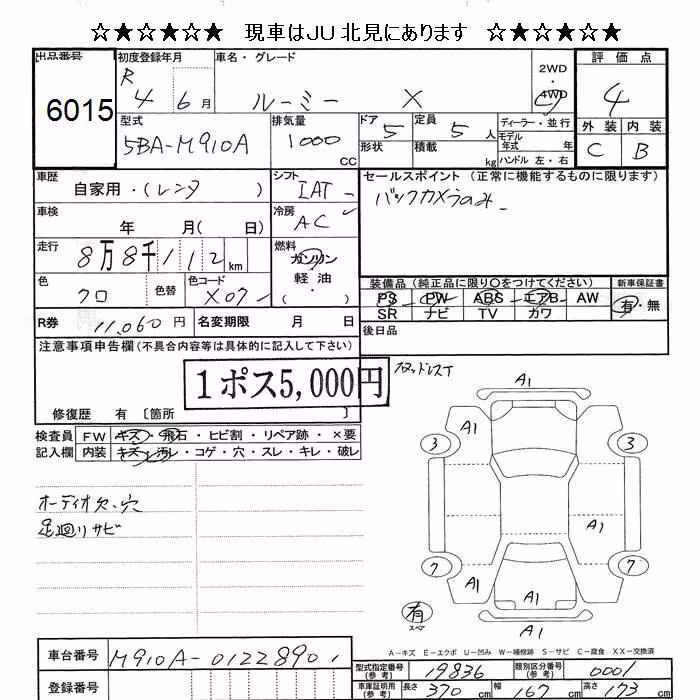 ☆★☆★☆★ 現車はJU北見にあります ☆★☆★☆★
出品番号 6015
初度登録年月 R 4 6月
車名・グレード ルーミー X
2WD ・ 4WD
評価点 4
外装 内装
C B
型式 5BA-M910A
排気量 1000 CC
ドア 5 定員 5人
形状 積載 kg
ディーラー・並行
モデル年式 年
ハンドル 左・右
車歴 自家用・(レンタ )
シフト IAT
セールスポイント (正常に機能するものに限ります)
バックカメラのみ
車検 年 月( 日)
冷房 AC
走行 8万8千112km
燃料 ガソリン 軽油 ( ・ )
色 クロ 色替 色コード X07
装備品 (純正品に限り○をつけてください) 新車保証書
PS PW ABS エアB AW
SR ナビ TV カワ
有・無
R券 11,060円 名変期限 月 日
後日品
注意事項申告欄(不具合内容等は具体的に記入して下さい)
1ポス5,000円
スタッドレスT
修復歴 有 〔箇所 〕
検査員記入欄
FW キズ・飛石・ヒビ割・リペア跡・×要
内装 キズ・汚レ・コゲ・穴・スレ・キレ・破レ
オーディオ欠、穴
足廻リサビ
A1
A1
3 3
A1
7 7
A1 A1
有 スペア
A1
A-キズ E-エクボ U-凹み W-補修跡 S-サビ C-腐食 XX-交換済
車台番号 M910A-01228901
登録番号
型式指定番号(参考) 19836 類別区分番号(参考) 0001
車庫証明用(参考) 長さ 370cm 幅 167cm 高さ 173cm